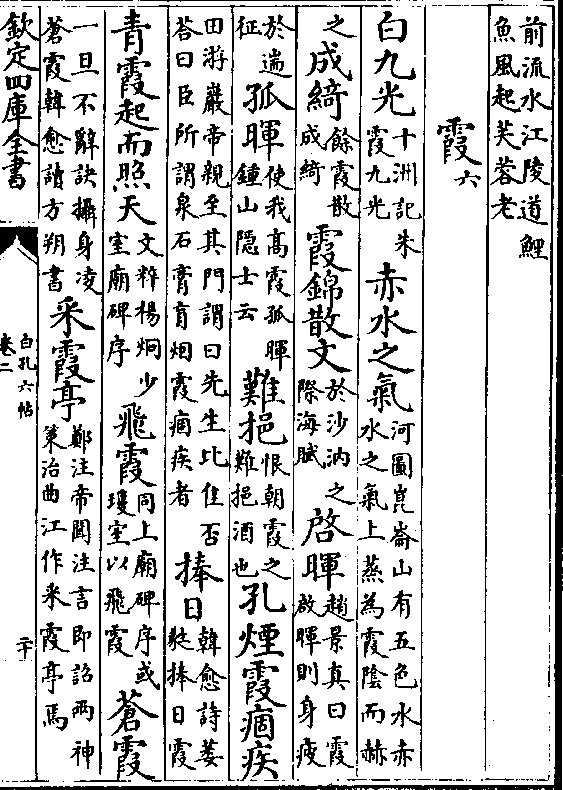 前流水江陵道鯉
魚風起芙蓉老
霞六
白九光十洲記朱霞九光 赤水之氣河圖崑崙山有五色水赤水之氣上蒸為霞陰而赫
之成綺餘霞散成綺 霞錦散文於沙汭之際海賦 啓暉趙景真曰霞啟暉則身疲
於遄征孤暉使我高霞孤暉鍾山隱士云 難挹恨朝霞之難挹酒也 孔煙霞痼疾
田游巖帝親至其門謂曰先生比佳否荅曰臣所謂泉石膏肓烟霞痼疾者 捧日韓愈詩萎蕤捧日霞
青霞起而照天文粹楊炯少室廟碑序 飛霞同上廟碑序或瓊室以飛霞 蒼霞
一旦不辭訣攝身凌蒼霞韓愈讀方朔書 采霞亭鄭注帝聞注言即詔兩神策治曲江作采霞亭焉
欽定四庫全書
白孔六帖
卷二
二十